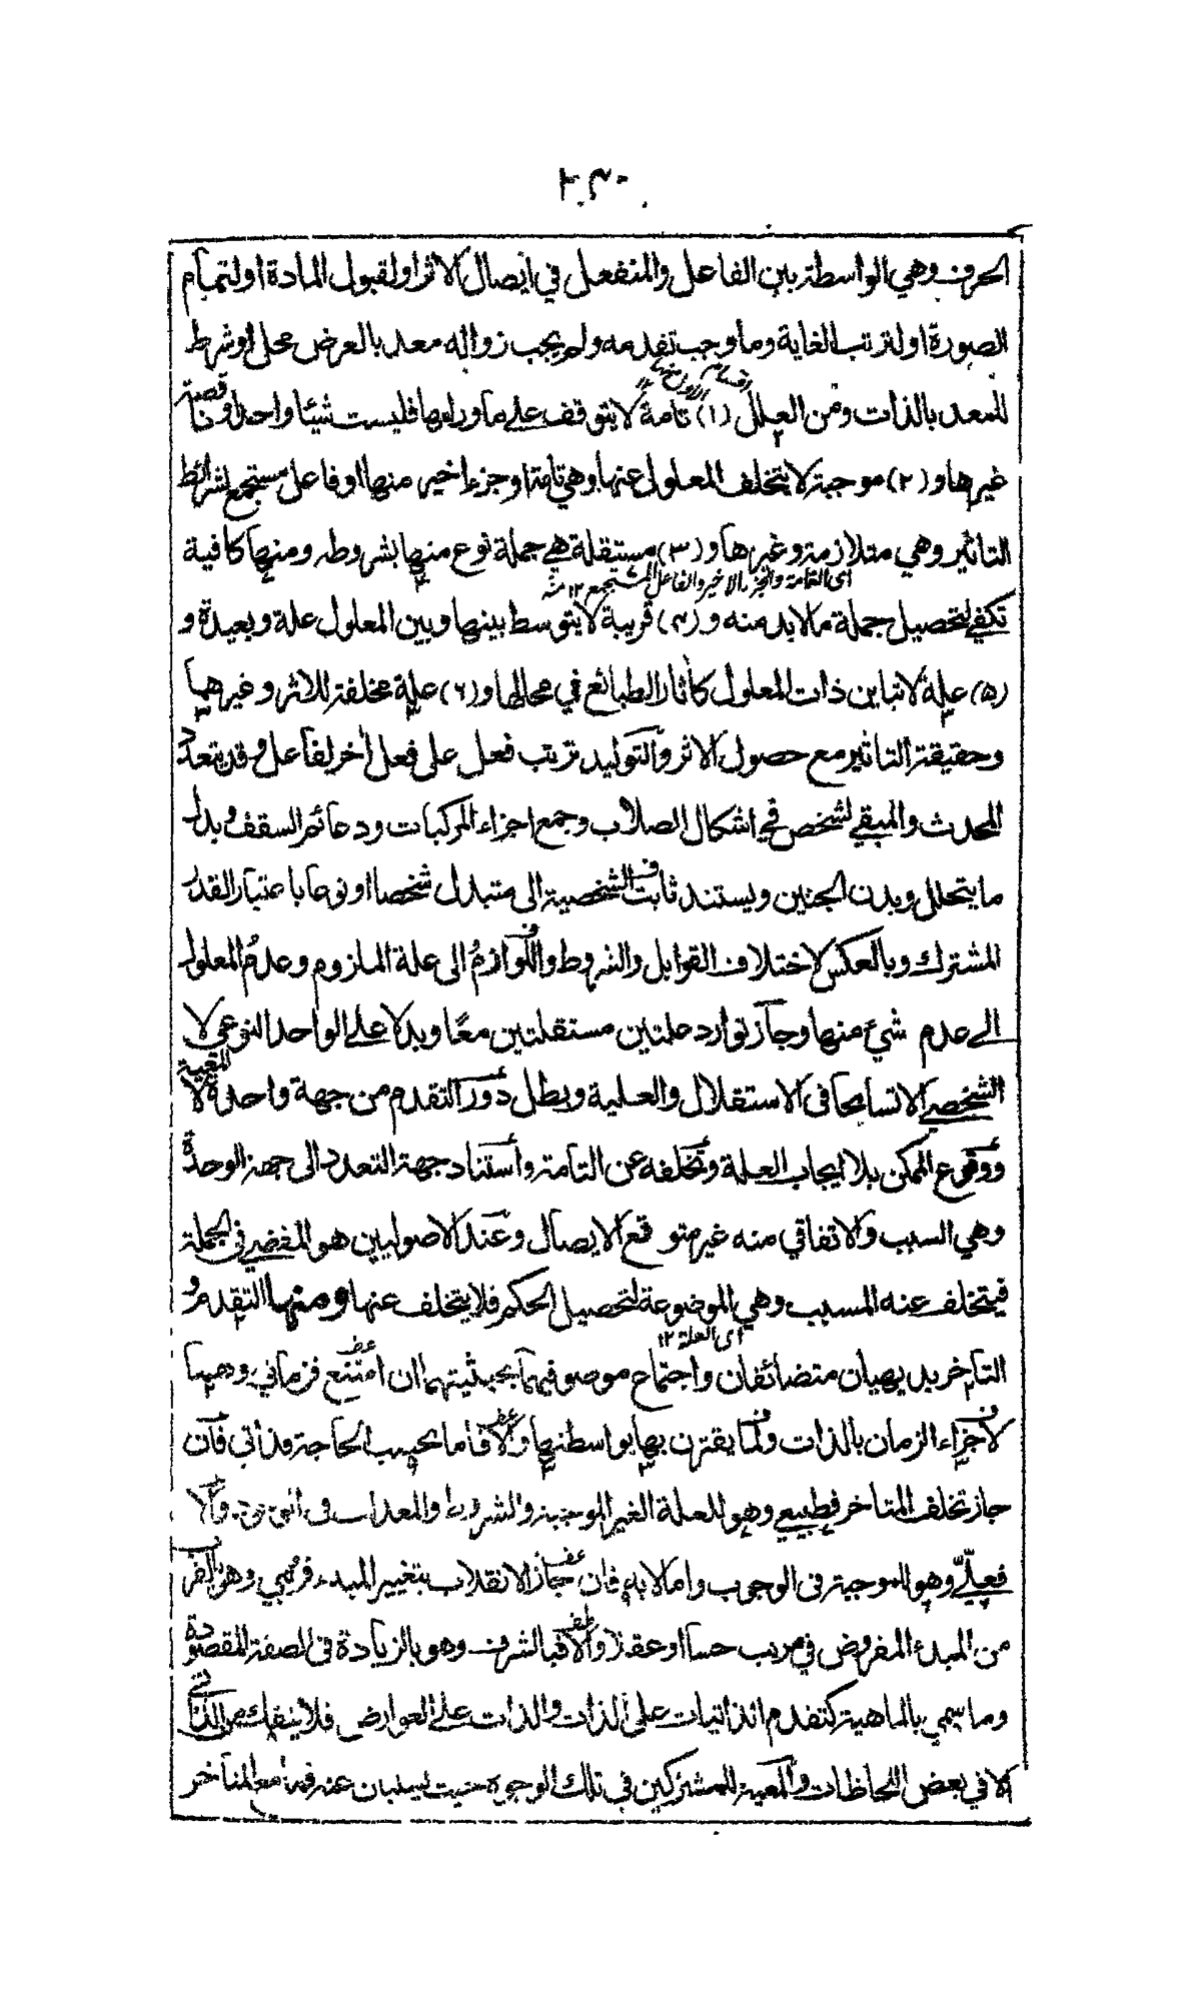 ٢٣٠
الحرف وهي الواسطة بين الفاعل والمنفعل في ايصال الاثر او لقبول المادة او لتمام
الصورة او لترتب الغاية وما وجب تقدمه ولم يجب زواله معد بالعرض محل او شرط
للمعد بالذات ومن العلل (١) تامة لا يتوقف على ما وراءها فليست شيئا واحدا و ناقصة
غيرها و (٢) موجبة لا يتخلف المعلول عنها وهي تامة او جزء اخير منها او فاعل مستجمع لشرائط
التاثير وهي متلازمة وغيرها و (٣) مستقلة هي جملة نوع منها بشروطه ومنها كافية
اى التامة والجزء الاخير والفاعل المستجمع ١٢ منه
تكفي لتحصيل جملة ما لا بد منه و (٤) قريبة لا يتوسط بينها وبين المعلول علة وبعيدة و
(٥) علة لا تباين ذات المعلول كآثار الطبائع في محالها و (٦) علة مخلفة للاثر وغيرهما
وحقيقة التاثير مع حصول الاثر والتوليد ترتب فعل على فعل اخر لفاعل وقد يتعدد
المحدث والمبقي لشخص في اشكال الصلاب وجمع اجزاء المركبات ودعائم السقف وبدل
ما يتحلل وبدن الجنين ويستند ثابت الشخصية الى متبدل شخصا او نوعا باعتبار القدر
المشترك وبالعكس لاختلاف القوابل والشروط واللوازم الى علة الملزوم وعدم المعلول
الى عدم شيء منها وجاز توارد علتين مستقلتين معا وبدلا على الواحد النوعي لا
الشخصي الا تسامحا في الاستقلال والعلية وبطل دور التقدم من جهة واحدة لا المعية
ووقوع الممكن بلا ايجاب العلة وتخلفه عن التامة واستناد جهة التعدد الى جهة الوحدة
وهي السبب والاتفاقي منه غير متوقع الايصال وعند الاصوليين هو المفضي في الجملة
فيتخلف عنه المسبب وهي الموضوعة لتحصيل الحكم فلا يتخلف عنها ومنها التقدم و
اى العلة ١٢
التاخر بديهيان متضائفان واجتماع موصوفيهما بحيثيتهما ان امتنع فزماني وهما
لاجزاء الزمان بالذات ولما يقترن بها بواسطتها والا فاما بحسب الحاجة فذاتي فان
جاز تخلف المتاخر فطبيعي وهو للعلة الغير الموجبة والشروط والمعدات في والا
فعلّيّ وهو للموجبة في الوجوب واما لا به فان جاز الانقلاب بتغيير المبدء فرتبي وهو بالقرب
من المبدء المفروض في مرتب حسا او عقلا والا فبالشرف وهو بالزيادة في الصفة المقصودة
وما سمي بالماهية كتقدم الذاتيات على الذات والذات على العوارض فلا ينفك من الذاتي
الا في بعض اللحاظات والمعية للمشتركين في تلك الوجوه حيث يسلبان عنه المتاخر